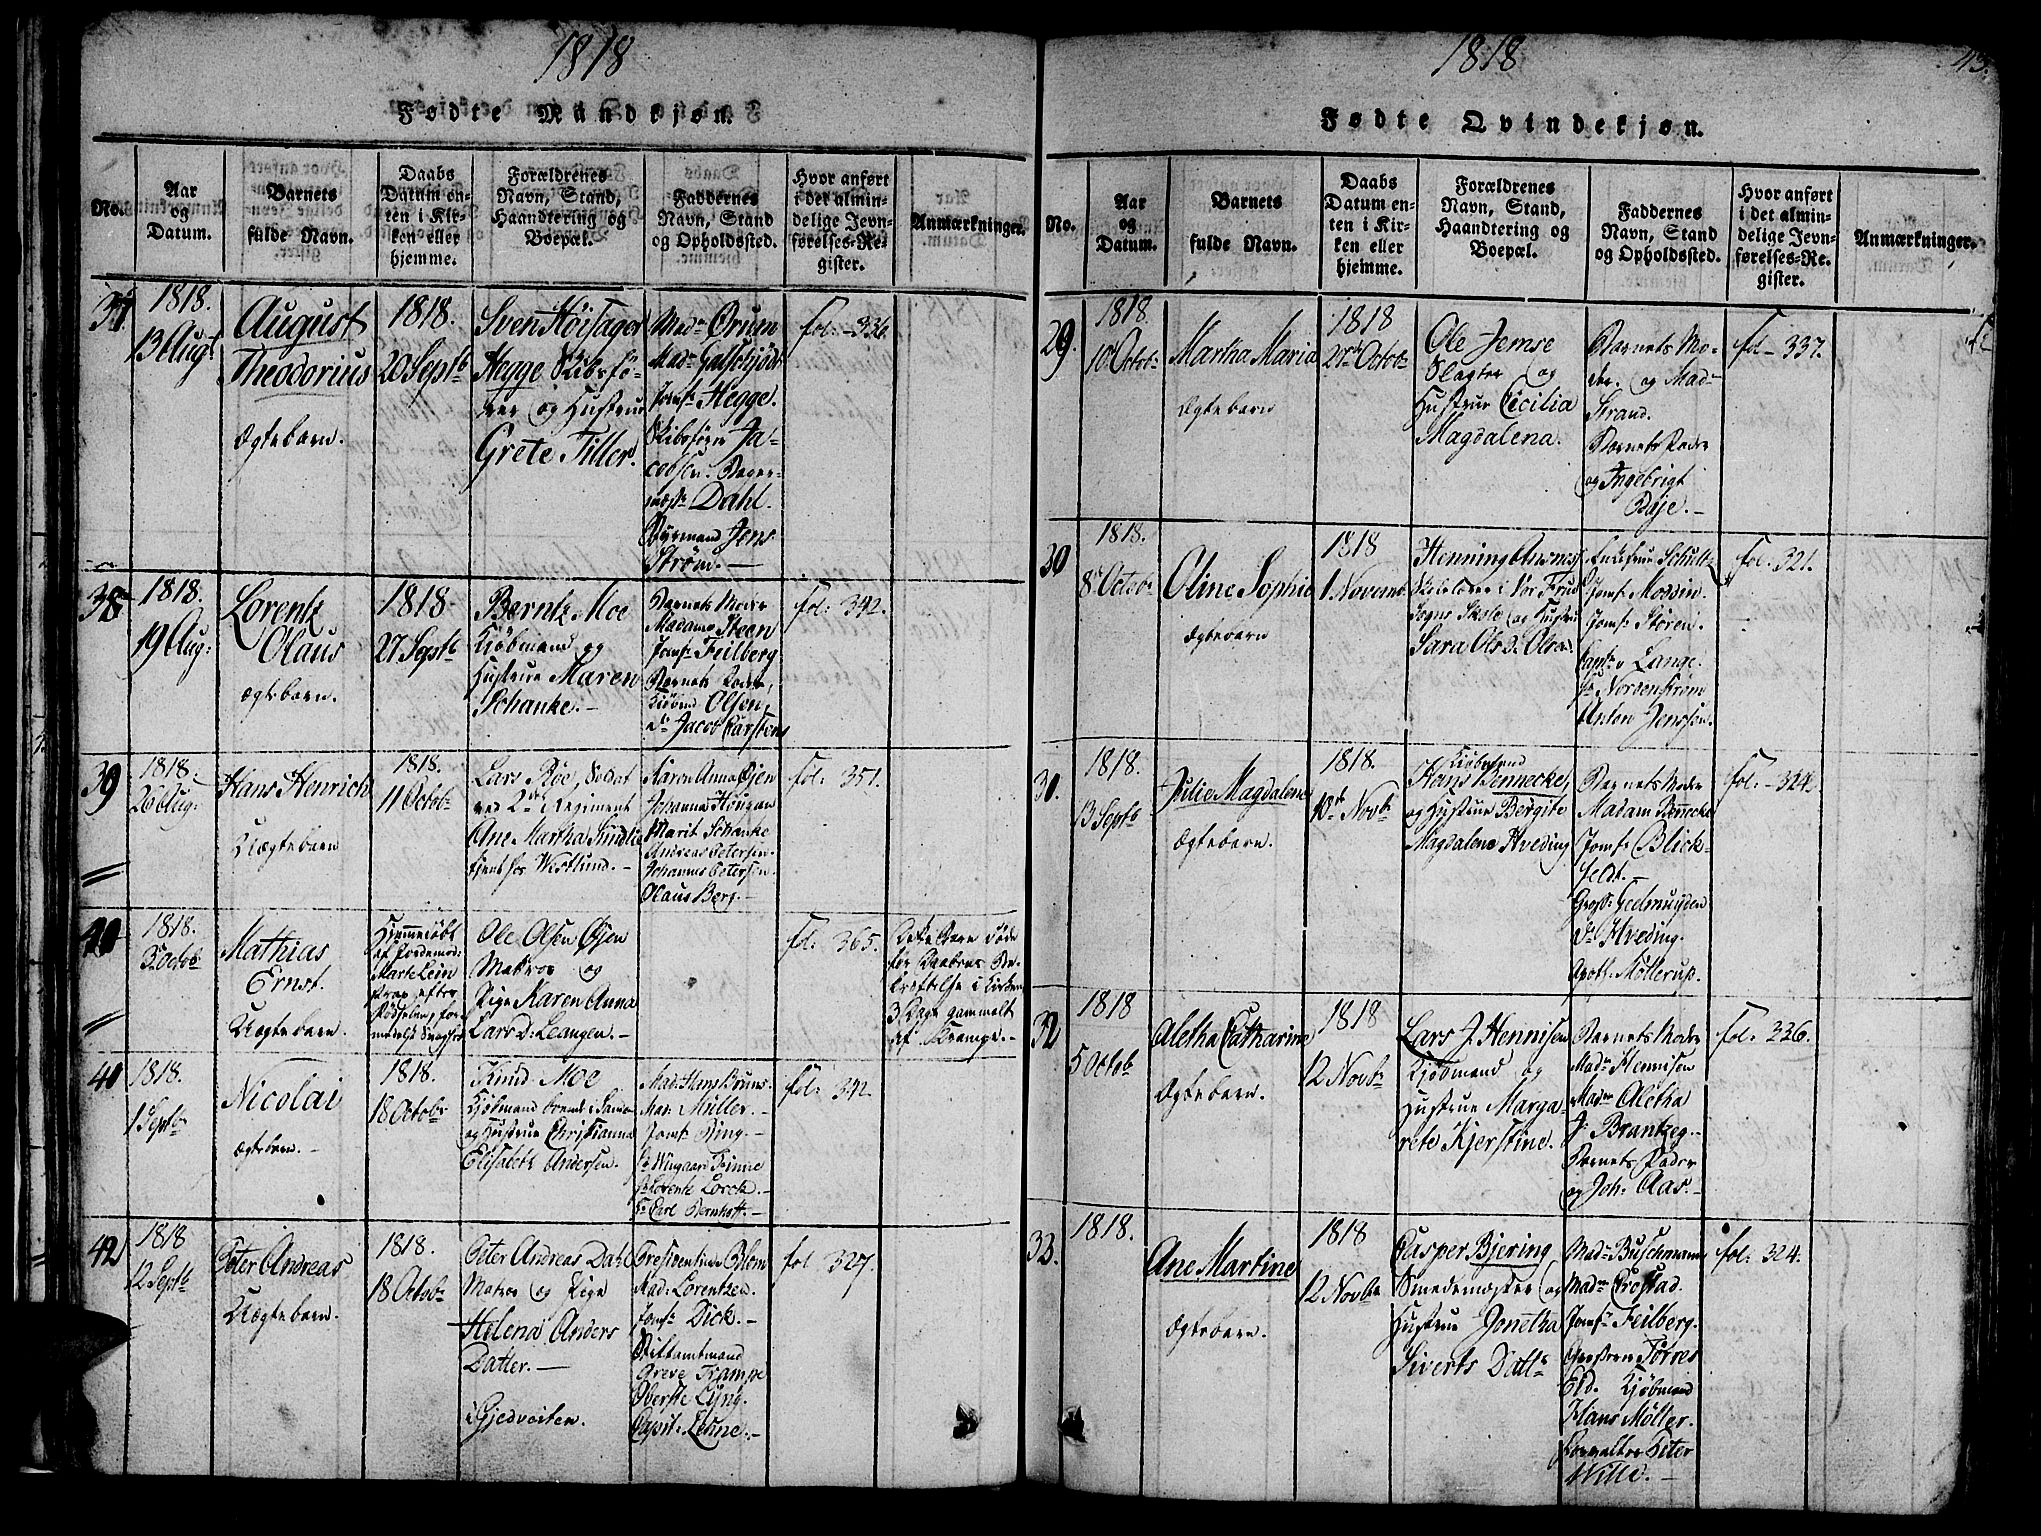 1818
Fødte Mandkjøn.
No.
Aar
og
Datum.
Barnets
fulde Navn.
Daabs
Datum en-
ten i Kir-
ken eller
hjemme.
Forældrenes
Navn, Stand,
Haandtering og
Boepæl.
Faddernes
Navn, Stand
og Opholdssted.
Hvor anført
i det almin-
delige Jevn-
førelses-Re-
gister.
Anmærkninger.
37
1818.
13 Augt
August
Theodorius
Ægtebarn.
1818.
20 Septb
Sven Höisager
Hegge Skibsfö-
rer og Hustrue
Grete Tiller.
Mad: Bruun
Jomf: Hegge.
Skibsförer Ja-
cobsen. Bager-
mest: Dahl.
Styrmand Jens
Ström.-
fol:-336.
38
1818.
19 Aug:
Lorentz
Olaus
Ægtebarn.
1818
27 Septb
Berntz Moe
Kjöbmand og
Hustrue Maren
Schanke.-
Barnets Moder
Madame Steen
Jomf: Feilberg
Barnets Fader,
Kiöbmd Olsen,
do Jacob Carstens
fol: 342.
39
1818.
26 Aug:
Hans Henrich
Uægtebarn
1818.
11 Octobr
Lars Röe, Soldat
ved 2det Regiment
Ane Martha
tient hos Westlund.-
Karen Anna Öjen
Johanna Hougan
Marit Schanke
Andreas Petersen.
Johannes Petersen.
Olaus Berg.-
fol: 351.
40
1818.
3 Octob
Mathias
Ernst.
Uægtebarn.
Hjemmedöbt
af Jordemod:
Mad: Klein
strax efter
Födselen, for-
medelst Svaghed
Ole Olsen Öjen
Matros og
Pige Karen Anna
Lars D: Leangen.-
fol: 365.
Dette Barn döde
för Daabens Be-
kræftelse i Kirken
3 Dage gammelt
af Krampe.-
41
1818.
1 Septb
Nicolai
Ægtebarn.-
1818.
18 Octobr
Knud Moe
Kjöbmand
og Hustrue Christianna
Elisabeth Andersen.
Mad: Hans Bruns.
Mad: Müller.-
Jomf: Bing.-
Hr Wingaar Finne
Hr Lorentz Lorck.-
Hr Carl Bernhoft.-
fol: 342.
42
1818
12 Septb
Peter Andreas
Uægtebarn.
1818.
18 Octobr
Peter Andreas Dahl
Matros og Pige
Helena Anders
Datter.-
i Gjedveiten.
Presidentinde Blom
Mad: Lorentzen.
Jomf: Dick.-
Stiftamtmand
Greve Trampe
Oberste Ljng.
Capit: Lehne.-
fol 327.
1818
43.
Fødte Qvindekjøn.
No.
Aar
og
Datum.
Barnets
fulde Navn.
Daabs
Datum en-
ten i Kir-
ken eller
hjemme.
Forældrenes
Navn, Stand,
Haandtering og
Boepæl.
Faddernes
Navn, Stand
og Opholdssted.
Hvor anført
i det almin-
delige Jevn-
førelses-Re-
gister.
Anmærkninger.
29.
1818.
10 Octobr
Martha Maria
Ægtebarn
1818
Octobr
Ole Jemse
Slagter og
Hustrue Cicilia
Magdalena.
Barnets Mo-
der og Mad:
Strand.
Barnets Fader
og Ingebrigt
Böje.-
fol- 337.
30
1818.
8 Octobr
Oline Sophie
Ægtebarn
1818
1 Novemb
Henning Ansnes
Skolelærer i Vor Frue
Sogns Skole og Hustrue
Sara Ols D: Olsen.
Enkefrue Schultz
Jomf: Mossin.
Jomf: Stören.
Captn v Lange.
Hr Nordenström
Anton Jenssen.
fol: 321.
31.
1818.
13 Septb
Julie Magdalene
Ægtebarn.
1818.
10de Novb
Kjöbmand
Hans Bennecke,
og Hustrue Bergite
Magdalena Hveding
Barnets Moder
Madam Bennecke
Jomf: Blick-
feldt.-
Gross: Geelmuyden
Hr Hveding.
Apoth: Möllerup.
fol:-324.
32
1818
5 Octob
Aletha Catharine
Ægtebarn.
1818
12 Novbr
Lars J. Hennisen
Kjöbmand og
Hustrue Marga-
rete Kjerstine.
Barnets Moder
Madm Hennisen
Madm Aletha
Hr Brantzeg.-
Barnets Fader
og Joh: Aas.-
fol: 336.
33.
1818.
Ane Martine
Ægtebarn.
1818
12 Novbr
Casper Bjering
Smedemester og
Hustrue Jonetha
Siverts Dattr
Madm Buschmann
Madm Crostad.
Jomf: Feilberg.
Torres
Eid. Kjöbmand
Hans Möller.
Forvalter Peter
Wille.-
fol: 324.